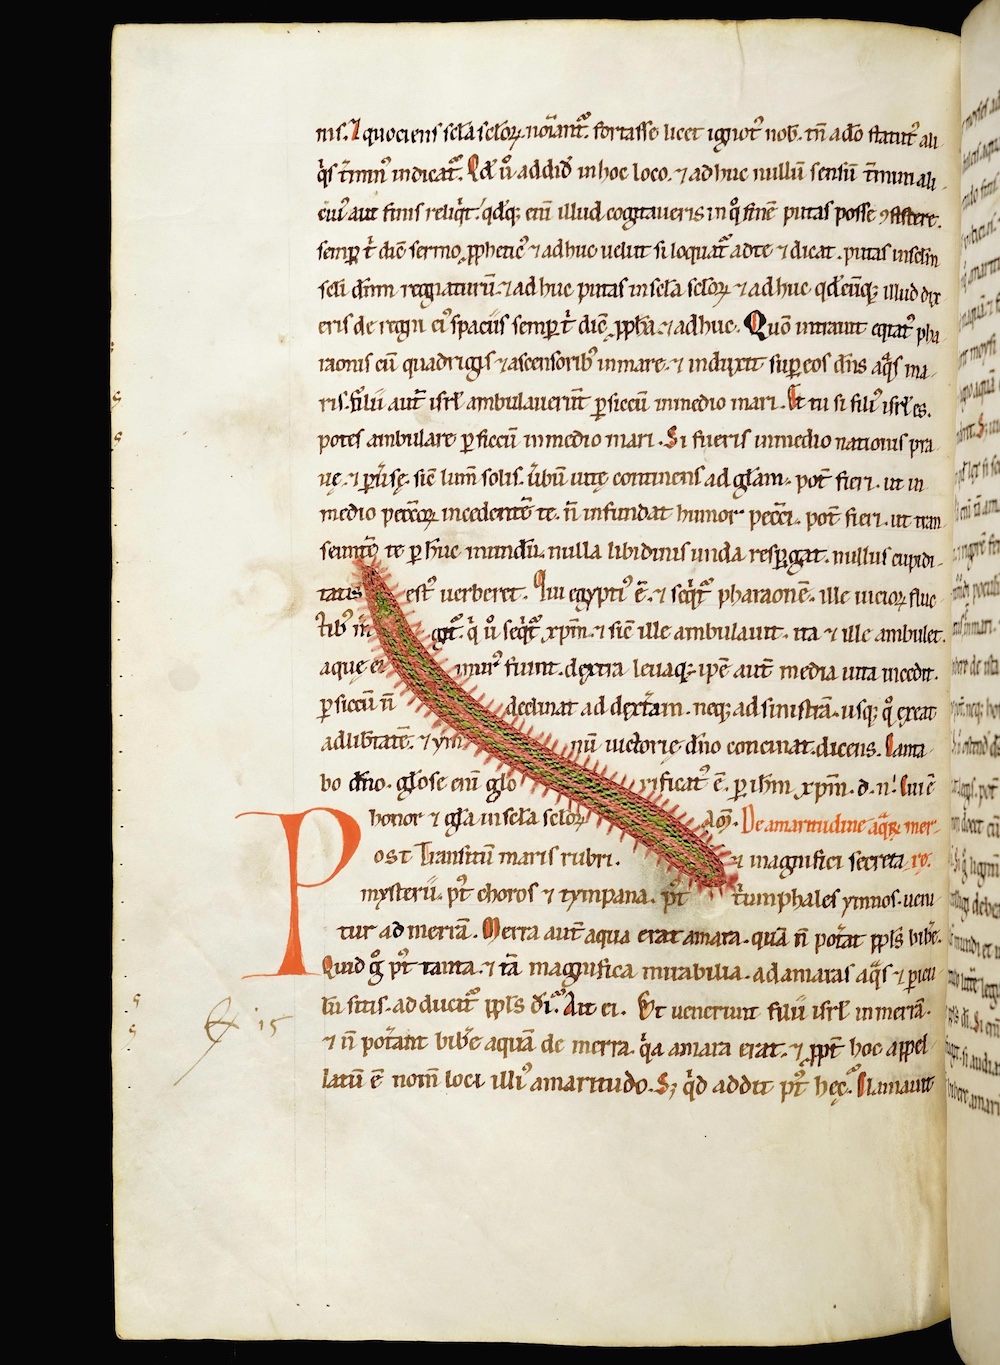 nis. Et quociens sc̄la sc̄lor̄ noīant̄. fortasse licet ignot᷒ nob̄. tn̄ a dō statut᷒ ali
q̄s t̄min᷒ indicat̄. Qd̄ ū addid̄ in hoc loco. ⁊ adhuc nullū sensū t̄mini ali
cui᷒ aut finis reliq̄t. qd̄cq; enī illud cogitaveris in q̊ finē putas posse ꝯsistere.
semꝑ t̄ diē sermo ꝓphetic᷒ ⁊ adhuc velut si loquat̄ ad te ⁊ dicat. putas in sc̄lm
sc̄li dn̄m regnaturū. ⁊ adhuc putas in sc̄la sc̄lor̄ ⁊ adhuc qd̄cūq; illud dix
eris de regni ei᷒ spaciis semꝑ t̄ diē ꝓph̄a. ⁊ adhuc. Quō intravit eqtat᷒ pha
raonis cū quadrigis ⁊ ascensorib᷒ in mare. ⁊ induxit suꝑ eos dn̄s aq̄s ma
ris. filii aut̄ isrl̄ ambulaverūt ꝑ siccū in medio mari. Et tu si fili᷒ isrl̄ es.
potes ambulare ꝑ siccū in medio mari. Si fueris in medio nationis pra
vę. ⁊ ꝑv̄sę. sic̄ lum̄ solis. v̄bū vitę continens ad gl̄am. pot̄ fieri. ut in
medio pecc̄or̄ incedentē te. n̄ infundat humor pecc̄i. pot̄ fieri. ut tran
seunt̄ē te ꝑ hūc mundū. nulla libidinis unda resꝑgat. nullus cupidi
tatis est᷒ verberet. Qui egypti᷒ ē. ⁊ seq̄t̄ pharaonē. ille vicior̄ fluc
tib᷒ git̄. q̄ ū seq̄t̄ xp̄m. ⁊ sic̄ ille ambulavit. ita ⁊ ille ambulet.
aquę ei mur᷒ fiunt. dextra levaq; ip̄e aut̄ media via incedit.
ꝑ siccū n̄ declinat ad dext̄am. neq; ad sinistrā. usq; q̊ exeat
ad lib̄tatē. ⁊ ym nū victorię dn̄o concinat. dicens. Canta
bo dn̄o. gl̄ose enī glo rificat᷒ ē. ꝑ ih̄m xp̄m. d. n̄. Cui ē
honor ⁊ gl̄a in sc̄la sc̄lor̄ am̄. De amaritudine aq̄r̄ mer
Post Transitū maris rubri. ⁊ magnifici secreta
mysterii. p᷒t choros ⁊ tympana. p᷒t t̄umphales ymnos. veni
tur ad merrā. Merra aut̄ aqua erat amara. quā n̄ pot̄at ppl̄s bib̄e.
Quid g̊ p᷒t tanta. ⁊ tā magnifica mirabilia. ad amaras aq̄s ⁊ p̄icu
lū sitis. adducit̄ ppl̄s dī. Ait ei. Et venerunt filii isrl̄ in merrā.
⁊ n̄ pot̄ant bib̄e aquā de merra. q̄a amara erat. ⁊ ꝓpt̄ hoc appel
latū ē nom̄ loci illi᷒ amaritudo. S; q̄d addit p᷒t hęc. Clamavit
15